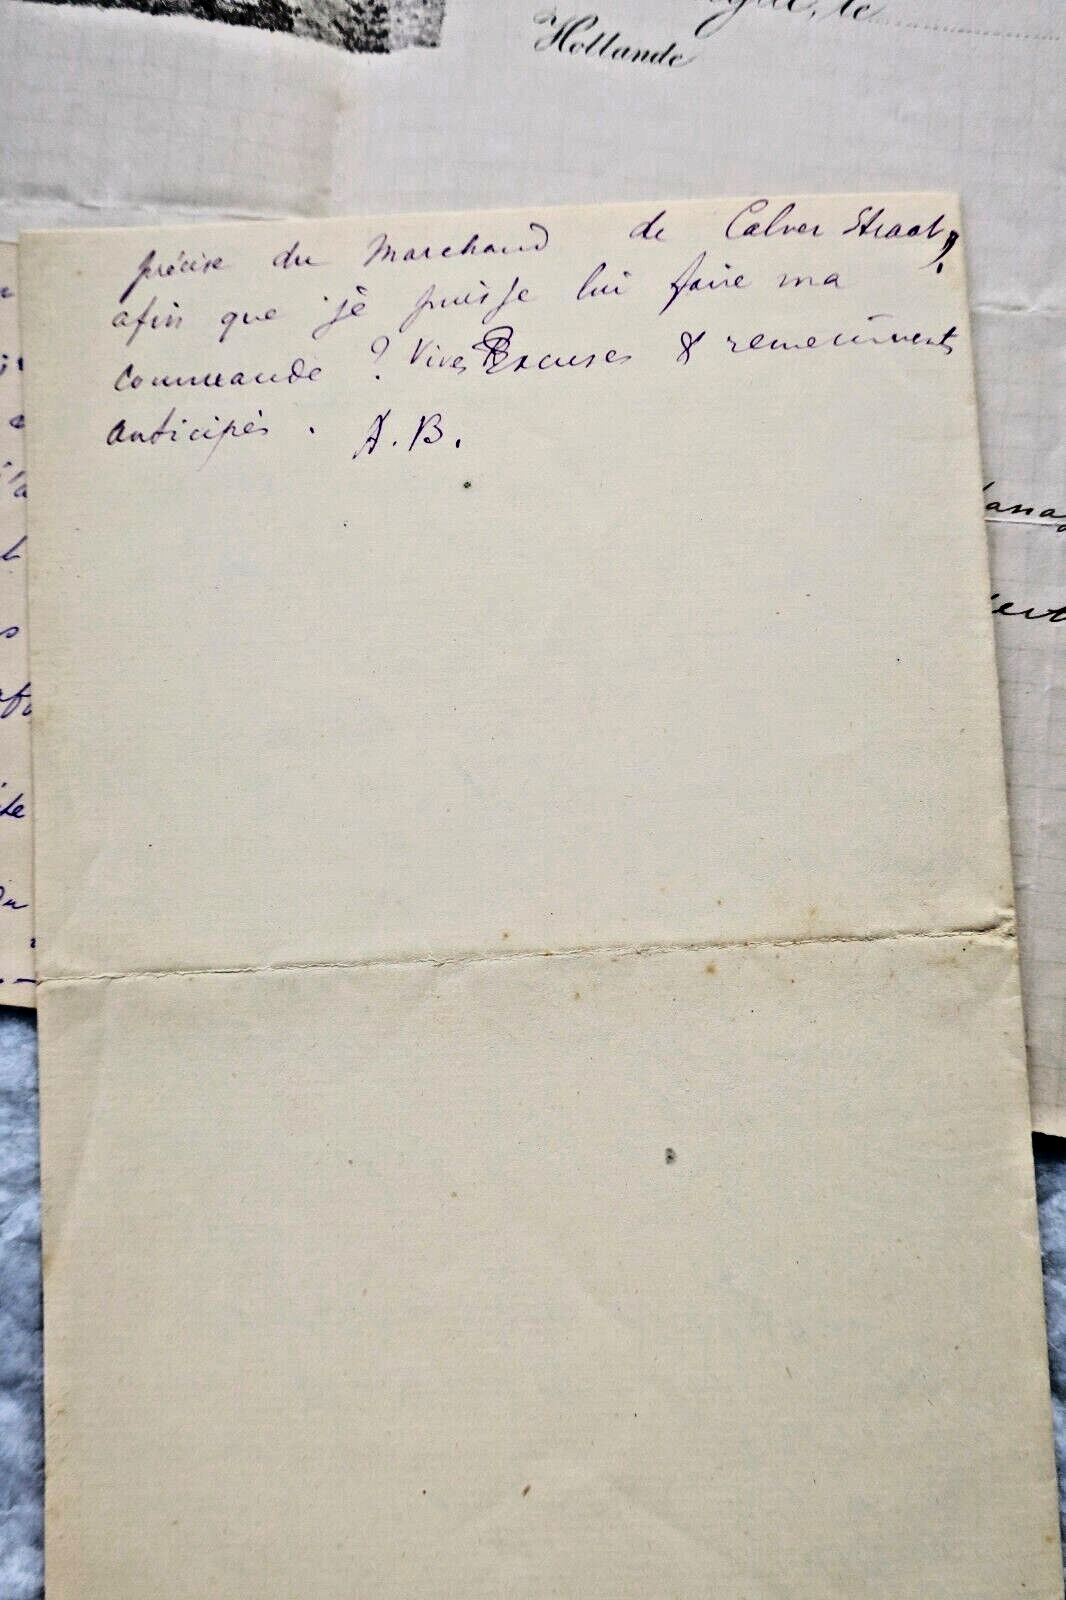 le
Hollande
précise du Marchand de Calver Straat,
afin que je puisse lui faire ma
commande ? Vives Excuses & remerciments
anticipés. A. B.